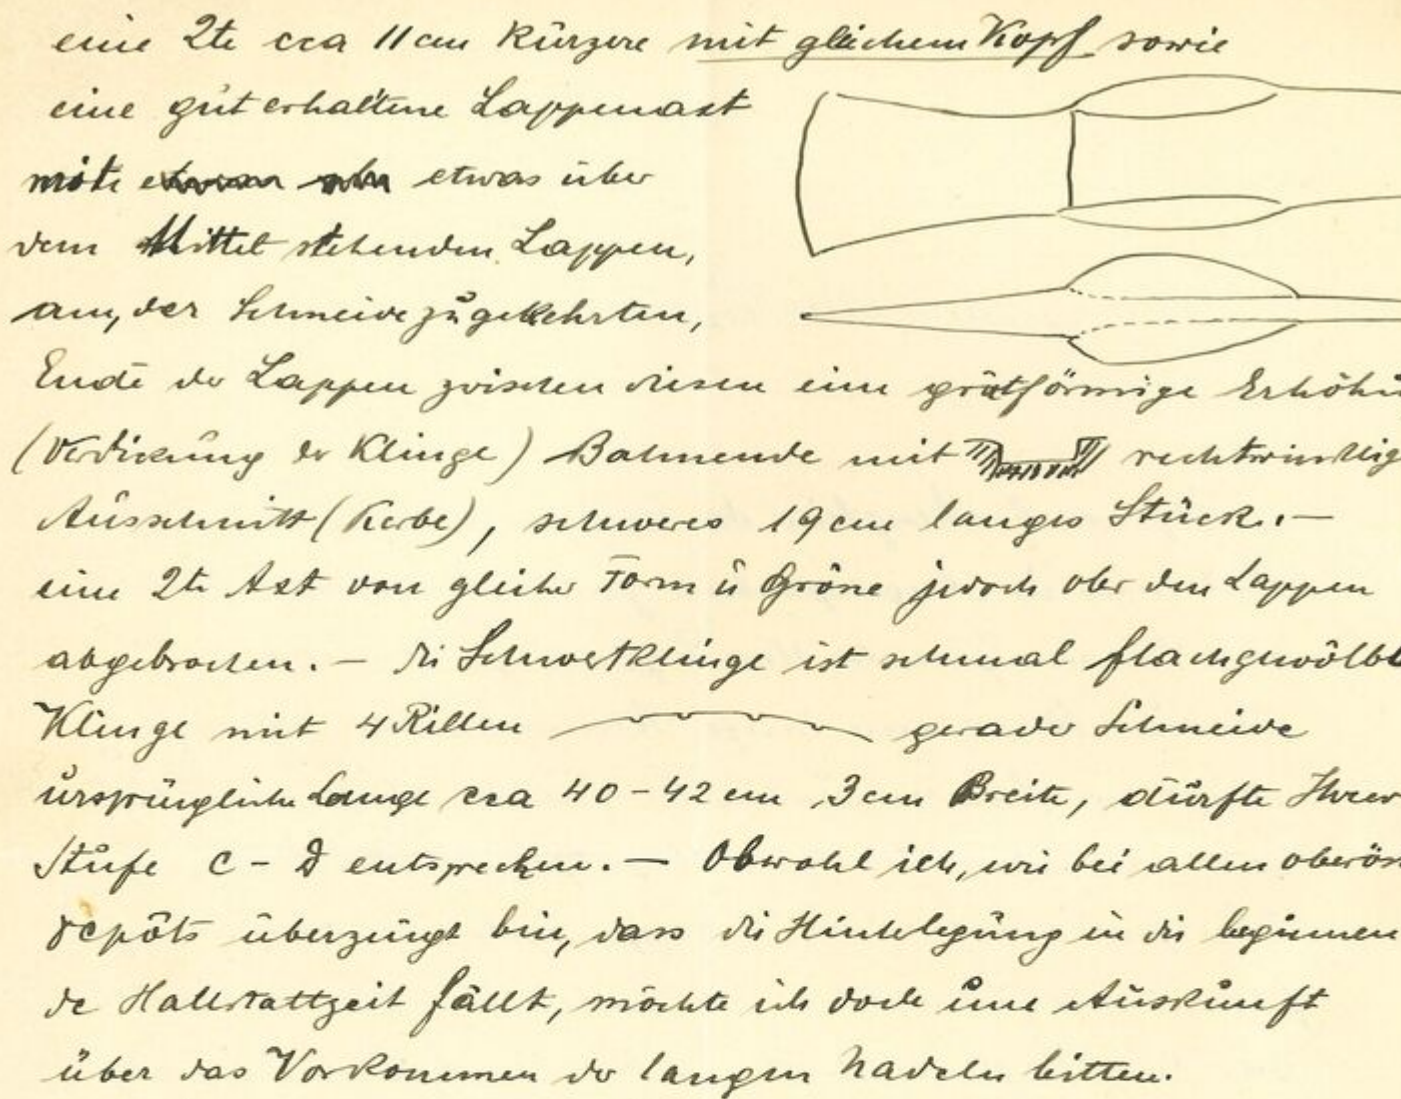 eine 2te cca 11cm kürzere mit gleichem Kopf sowie
eine gut erhaltene Lappenaxt
mit etwas über
dem Mittel stehenden Lappen,
am, der Schneide zugekehrten,
Ende der Lappen zwischen diesen eine gratförmige Erhöhu
(Verdickung der Klinge) Bahnende mit rechtwinklig
Ausschnitt (Kerbe), schweres 19cm langes Stück. —
eine 2te Axt von gleicher Form u Grösse jedoch ober den Lappen
abgebrochen. — die Schwertklinge ist schmal flachgewölbt
Klinge mit 4 Rillen gerade Schneide
ursprüngliche Länge cca 40-42 cm, 3cm Breite, dürfte Ihrer
Stufe C - D entsprechen. — Obwohl ich, wie bei allen oberös
depôts überzeugt bin, dass die Hinterlegung in die beginnen
de Hallstattzeit fällt, möchte ich doch um Auskunft
über das Vorkommen der langen Nadeln bitten.